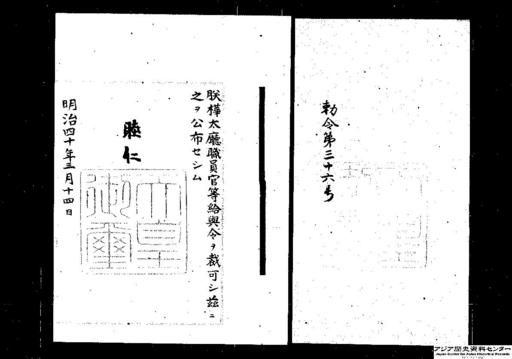 勅令第三十六号
朕樺太廳職員官等給與令ヲ裁可シ茲ニ
之ヲ公布セシム
睦仁
天皇
御璽
明治四十年三月十四日
アジア歴史資料センター
Japan Center for Asian Historical Records